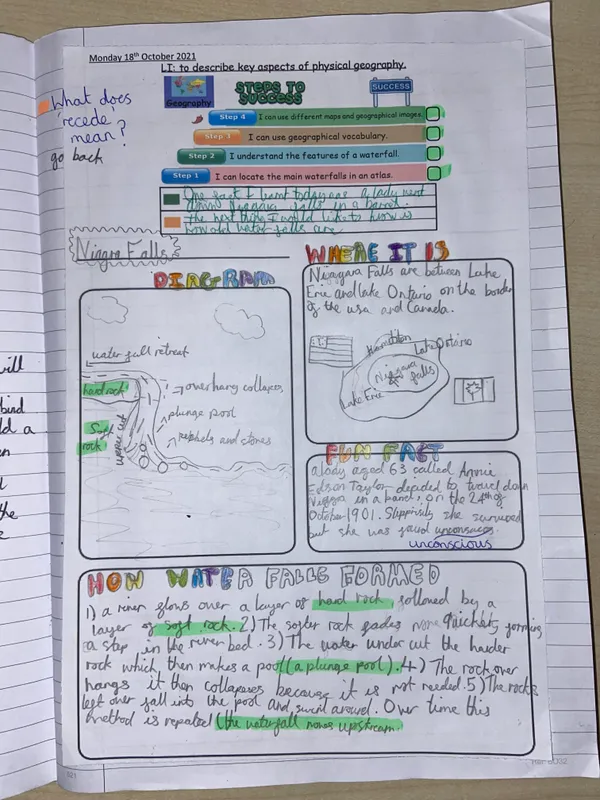 Monday 18th October 2021
LI: to describe key aspects of physical geography.
What does
'recede'
mean?
go back
Geography
STEPS TO
SUCCESS
SUCCESS
Step 4 I can use different maps and geographical images.
Step 3 I can use geographical vocabulary.
Step 2 I understand the features of a waterfall.
Step 1 I can locate the main waterfalls in an atlas.
One fact I learnt today a lady went
down falls in a barrel.
the next thing I would like to know is
how old water falls are
Niagra Falls
DIAGRAM
water fall retreat
hard rock
overhang collapses
plunge pool
Soft
rock
under cut
and stones
WHERE IT IS
Niagara Falls are between Lake
Erie and lake Ontario on the border
of the usa and Canada.
Hamilton
Lake Ontario
Niagara
falls
Lake Erie
FUN FACT
a lady aged 63 called Annie
Edson Taylor decided to travel down
Niagra in a barrel, on the 24th of
October 1901. she survived
but she was found
unconscious
HOW WATER FALLS FORMED
1) a river flows over a layer of hard rock, followed by a
layer of soft rock. 2) The softer rock fades more quickly, forming
a step in the river bed. 3) The water under cut the harder
rock which then makes a pool (a plunge pool). 4) The rock over
hangs it then collapses because it is not needed. 5) The rocks
left over fall into the pool and swirl around. Over time this
method is repeated (the waterfall moves upstream.
will
d a
the